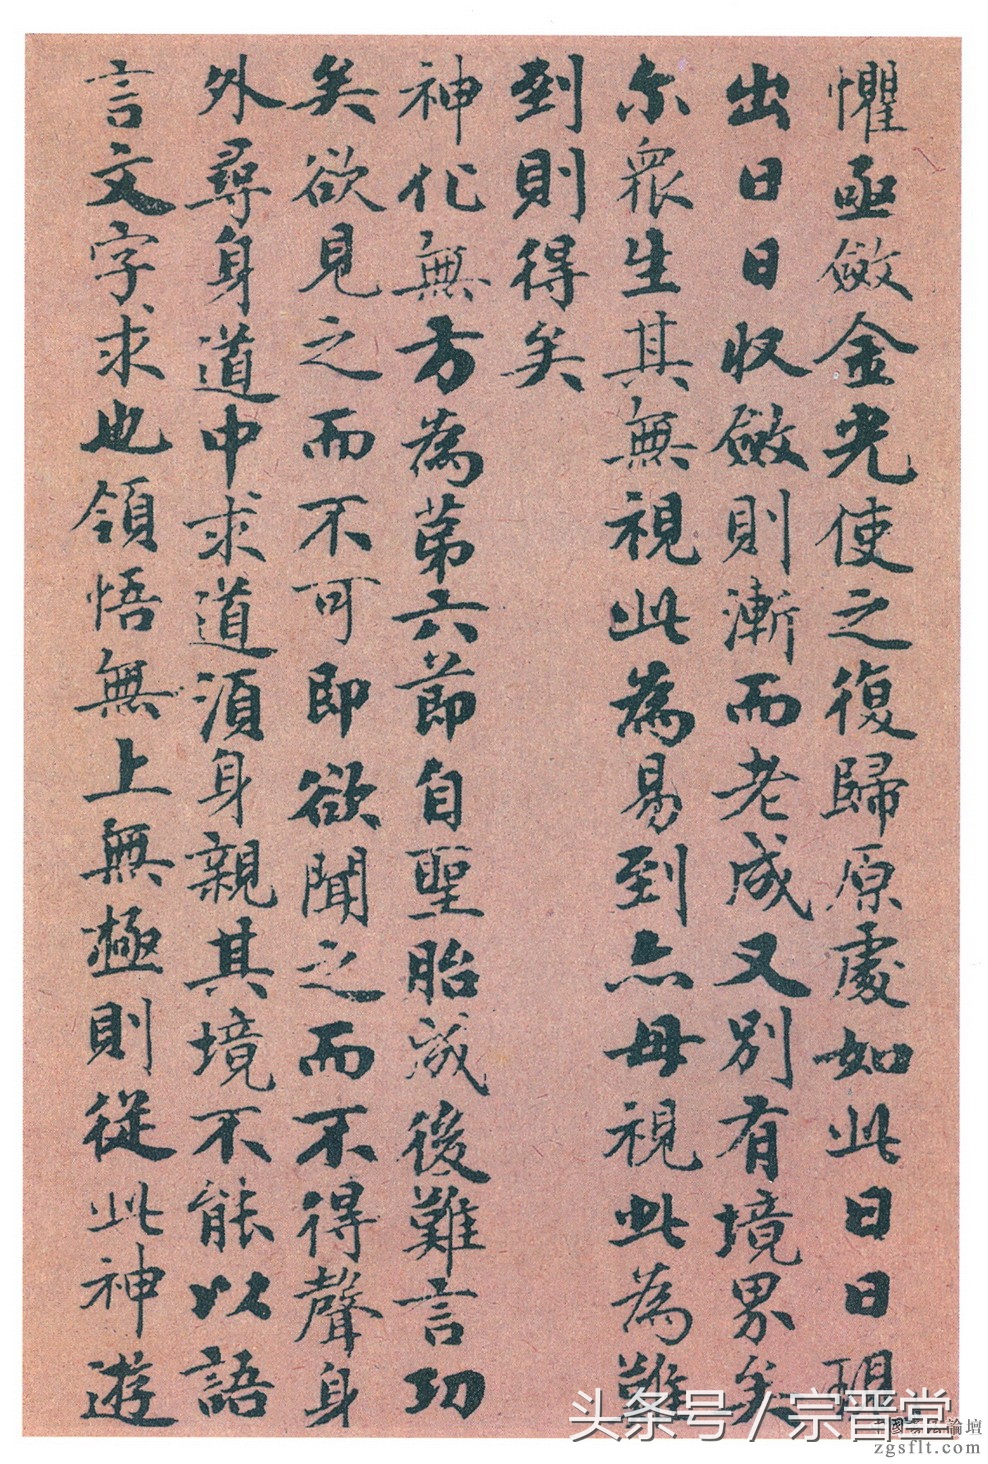 懼亟斂金光使之復歸原處如此日日現
出日日收斂則漸而老成又別有境界矣
尔衆生其無視此為易到亦毋視此為難
到則得矣
神化無方為第六節自聖胎成後難言功
矣欲見之而不可即欲聞之而不得聲身
外尋身道中求道須身親其境不能以語
言文字求也領悟無上無極則從此神遊
头条号/宗晋堂
論壇
zgsflt.com